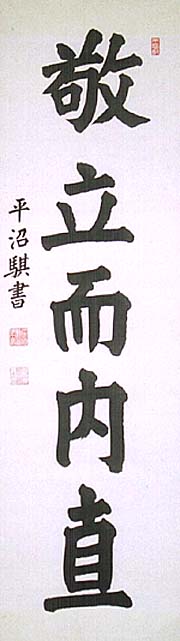 敬立而内直
平沼騏書